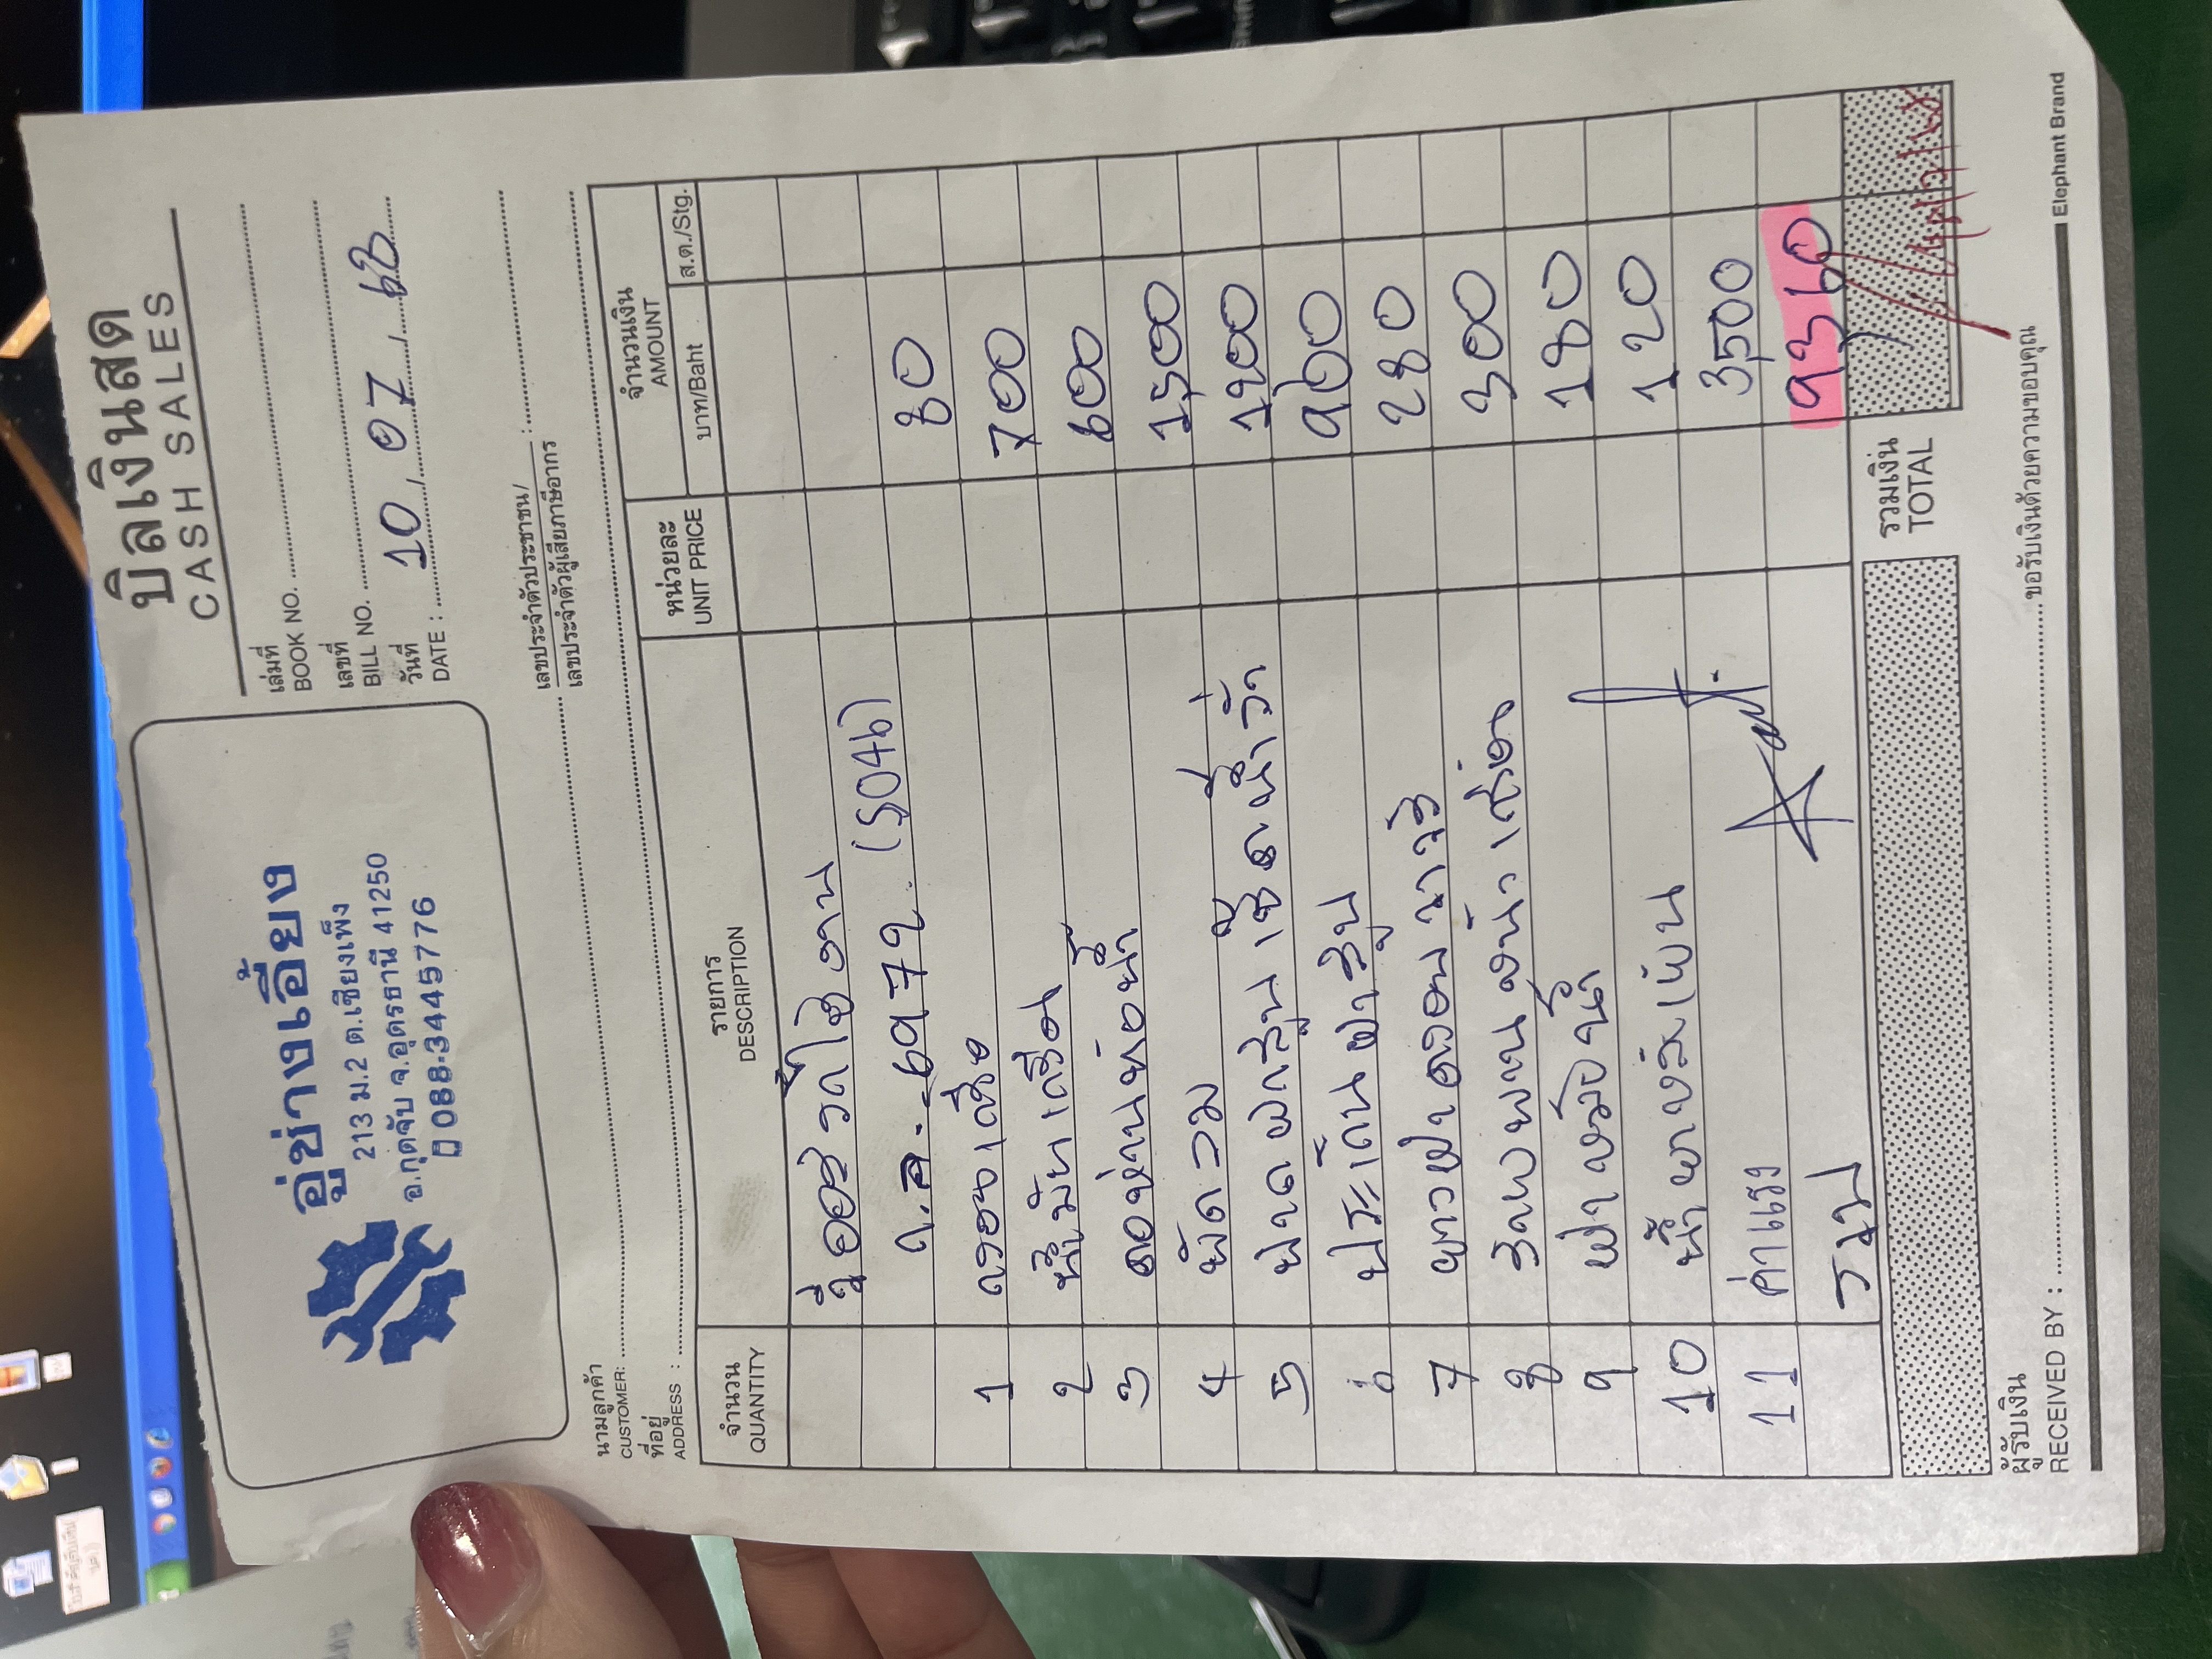 บิลเงินสด
CASH SALES
อู่ช่างเอี้ยง
213 ม.2 ต.เชียงเพ็ง
อ.กุดจับ จ.อุดรธานี 41250
088-3445776
เล่มที่
BOOK NO.
เลขที่
BILL NO.
วันที่
DATE : 10 / 07 / 68
นามลูกค้า
CUSTOMER:
เลขประจำตัวประชาชน/
เลขประจำตัวผู้เสียภาษีอากร :
ที่อยู่
ADDRESS :
จำนวน รายการ หน่วยละ จำนวนเงิน
QUANTITY DESCRIPTION UNIT PRICE AMOUNT
บาท/Baht ส.ต./Stg.
6972 (S046) 80
1 กรองเครื่อง 700
2 น้ำมันเครื่อง 600
3 คอห่านท่อน้ำ 1500
4 พัดลม 1200
5 960
6 ประเก็นฝาสูบ 280
7 กาวฝาครอบวาล์ว 300
8 สายพานหน้าเครื่อง 180
9 ฝาหม้อน้ำ 120
10 น้ำยาหล่อเย็น 3500
11 ค่าแรง 9360
รวม
รวมเงิน
TOTAL
ผู้รับเงิน
RECEIVED BY : ขอรับเงินด้วยความขอบคุณ
Elephant Brand